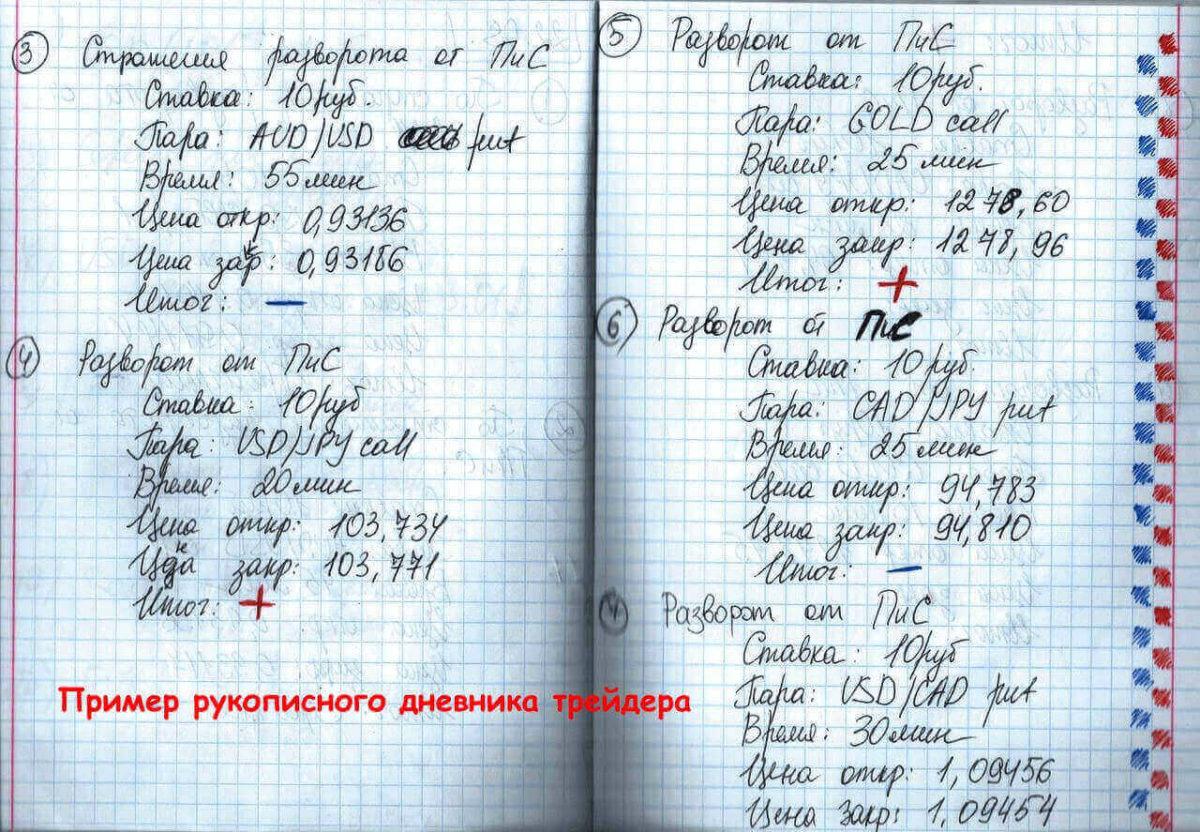 3 Стратегия разворота от ПиС
Ставка: 10 руб.
Пара: AUD/USD put
Время: 55 мин
Цена откр: 0,93136
Цена закр: 0,93186
Итог: —
4 Разворот от ПиС
Ставка: 10 руб
Пара: USD/JPY call
Время: 20 мин
Цена откр: 103,734
Цена закр: 103,771
Итог: +
Пример рукописного дневника трейдера
5 Разворот от ПиС
Ставка: 10 руб.
Пара: GOLD call
Время: 25 мин
Цена откр: 1278,60
Цена закр: 1278,96
Итог: +
6 Разворот от ПиС
Ставка: 10 руб.
Пара: CAD/JPY put
Время: 25 мин
Цена откр: 94,783
Цена закр: 94,810
Итог: —
Разворот от ПиС
Ставка: 10 руб
Пара: USD/CAD put
Время: 30 мин
Цена откр: 1,09456
Цена закр: 1,09454